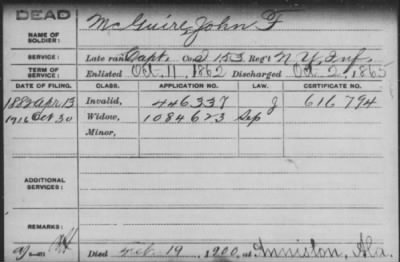 DEAD
NAME OF SOLDIER: McGuire, John F
SERVICE: Late rank Capt. Co. D 153 Reg't N.Y. Inf.
TERM OF SERVICE: Enlisted Oct. 11, 1862 Discharged Oct. 2, 1865
DATE OF FILING. CLASS. APPLICATION NO. LAW. CERTIFICATE NO.
1882 Apr. 13 Invalid, 446337 J 616794
1916 Oct 30 Widow, 1084623 Sep
Minor,
ADDITIONAL SERVICES:
REMARKS:
Died Feb. 19, 1900, at Anniston, Ala.